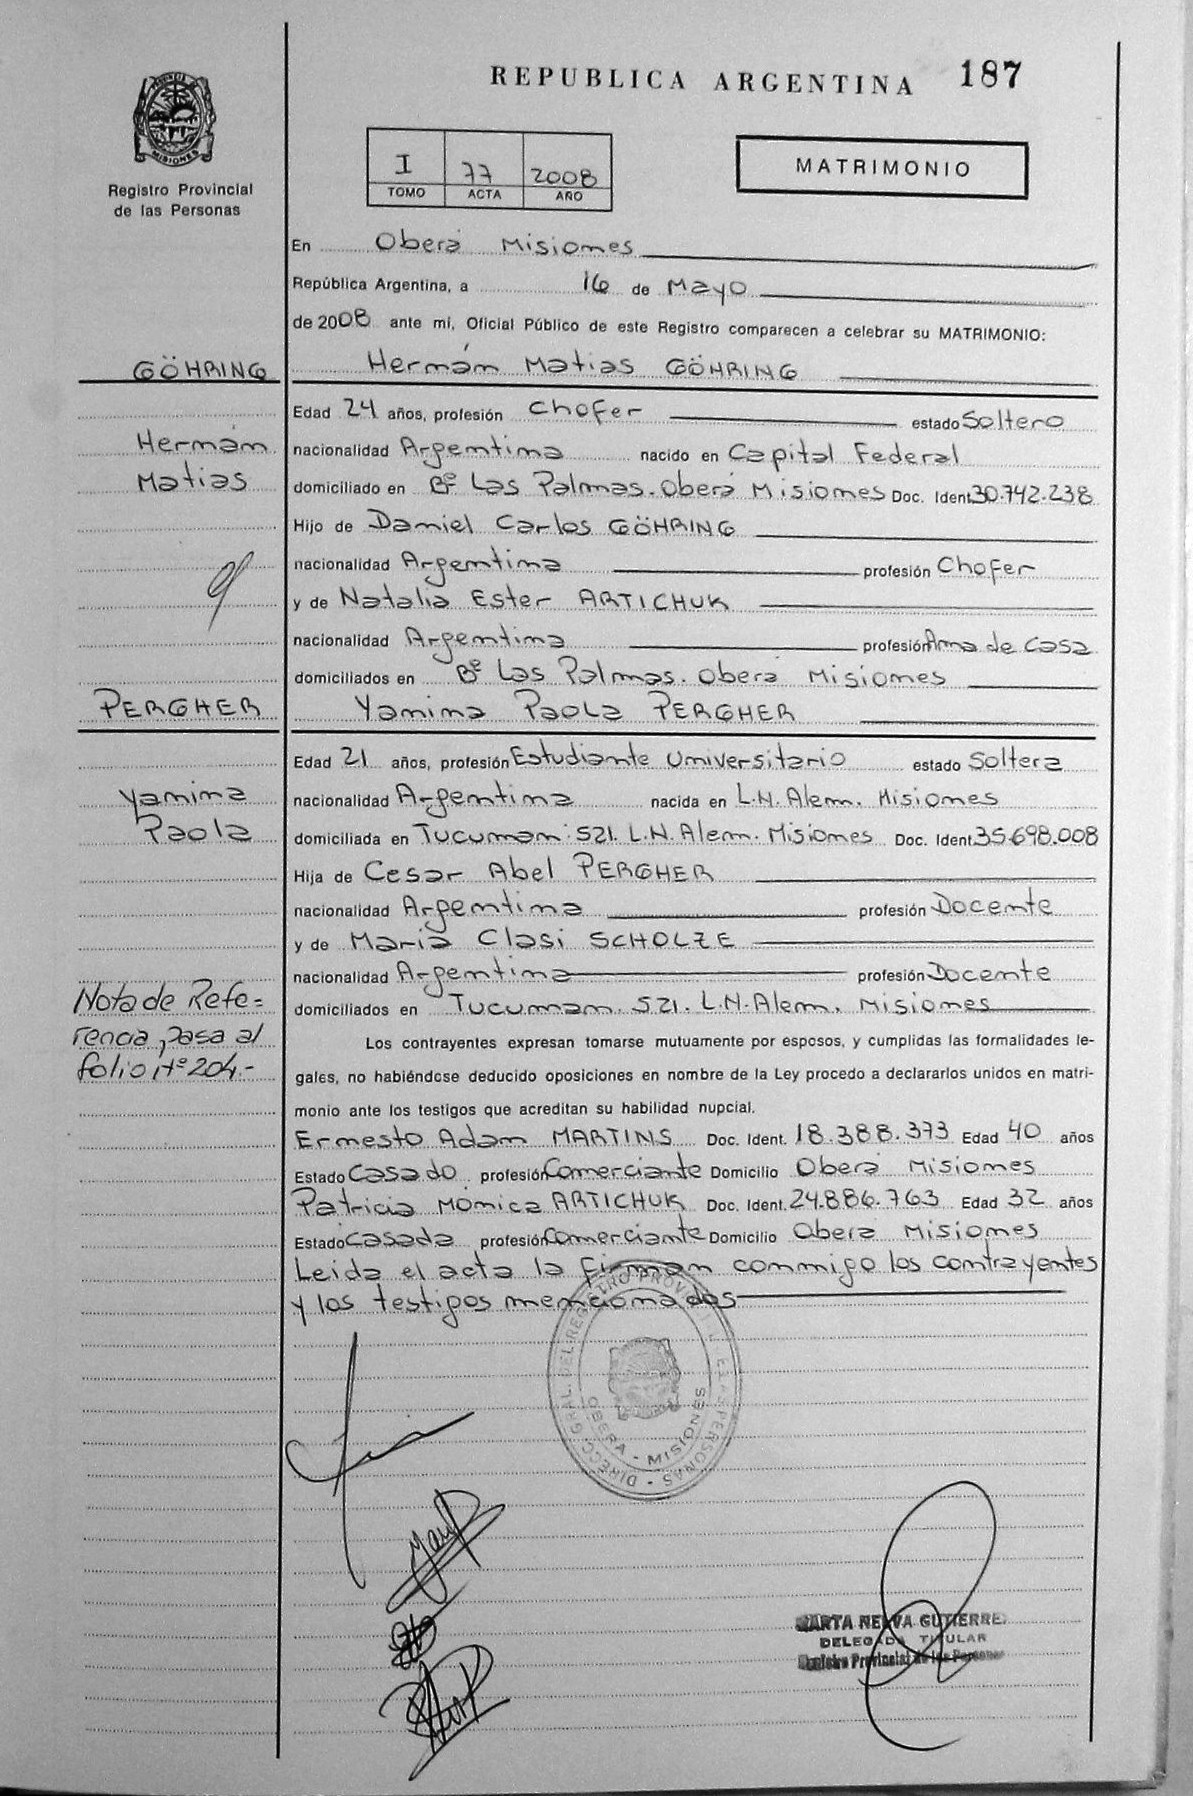 REPUBLICA ARGENTINA 187
MISIONES
Registro Provincial
de las Personas
I 77 2008
TOMO ACTA AÑO
MATRIMONIO
En Oberá Misiones
República Argentina, a 16 de Mayo
de 2008 ante mí, Oficial Público de este Registro comparecen a celebrar su MATRIMONIO:
GÖHRING
Hernán Matias GÖHRING
Hernán
Matias
Edad 24 años, profesión Chofer estado Soltero
nacionalidad Argentina nacido en Capital Federal
domiciliado en Bº Las Palmas. Oberá Misiones Doc. Ident. 30.742.238
Hijo de Daniel Carlos GÖHRING
nacionalidad Argentina profesión Chofer
y de Natalia Ester ARTICHUK
nacionalidad Argentina profesión Ama de Casa
domiciliados en Bº Las Palmas. Oberá Misiones
PERGHER
Yanina Paola PERGHER
Yanina
Paola
Edad 21 años, profesión Estudiante Universitario estado Soltera
nacionalidad Argentina nacida en L.N. Alem. Misiones
domiciliada en Tucuman: 521. L.N. Alem. Misiones Doc. Ident. 35.698.008
Hija de Cesar Abel PERGHER
nacionalidad Argentina profesión Docente
y de Maria Clasi SCHOLZE
nacionalidad Argentina profesión Docente
domiciliados en Tucuman. 521. L.N. Alem. Misiones
Nota de Refe=
rencia, pasa al
folio Nº 204.-
Los contrayentes expresan tomarse mutuamente por esposos, y cumplidas las formalidades le-
gales, no habiéndose deducido oposiciones en nombre de la Ley procedo a declararlos unidos en matri-
monio ante los testigos que acreditan su habilidad nupcial.
Ernesto Adam MARTINS Doc. Ident. 18.388.373 Edad 40 años
Estado Casado profesión Comerciante Domicilio Oberá Misiones
Patricia Mónica ARTICHUK Doc. Ident. 24.886.763 Edad 32 años
Estado Casada profesión Comerciante Domicilio Oberá Misiones
Leida el acta la firman conmigo los contrayentes
y los testigos mencionados
DIRECC. GRAL. DEL REGISTRO PROVINCIAL DE LAS PERSONAS
OBERA - MISIONES
MARTA NELVA GUTIERREZ
DELEGADA TITULAR
Registro Provincial de las Personas